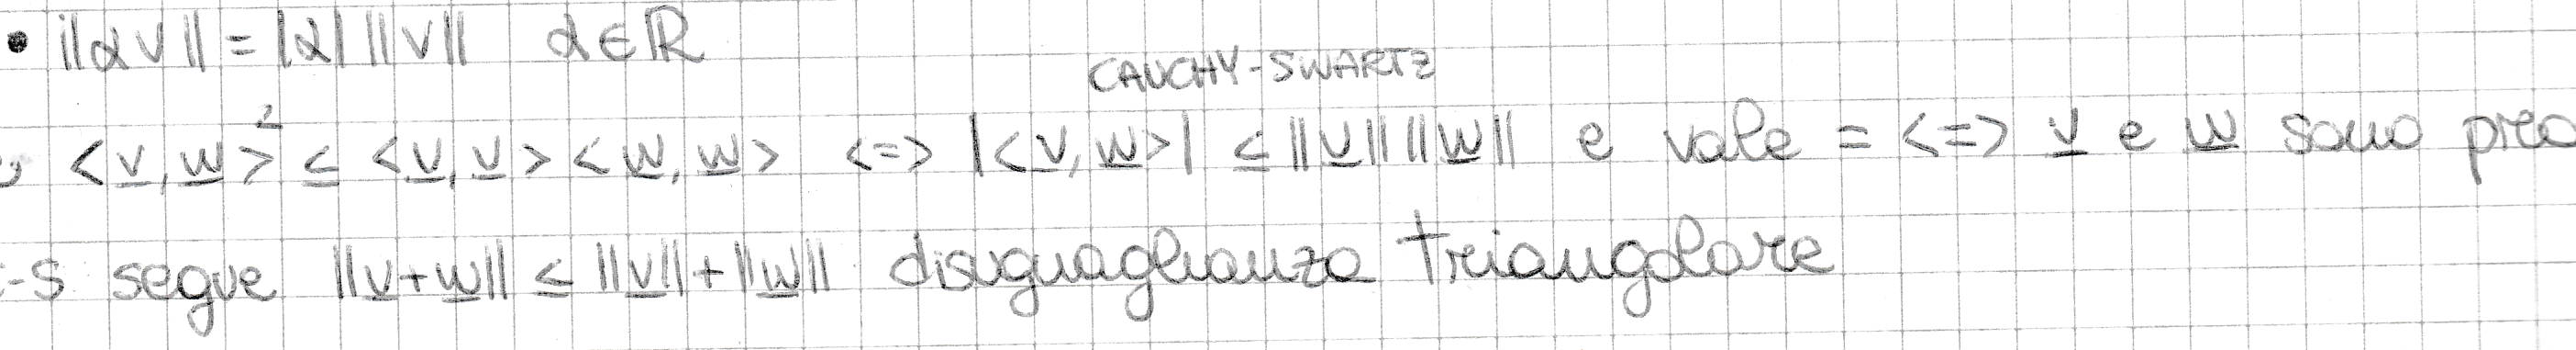 • ||αv|| = |α| ||v|| α∈ℝ
CAUCHY-SWARTZ
<v,w>² ≤ <v,v><w,w> <=> |<v,w>| ≤ ||v|| ||w|| e vale = <=> v e w sono
-S segue ||v+w|| ≤ ||v||+||w|| disuguaglianza triangolare